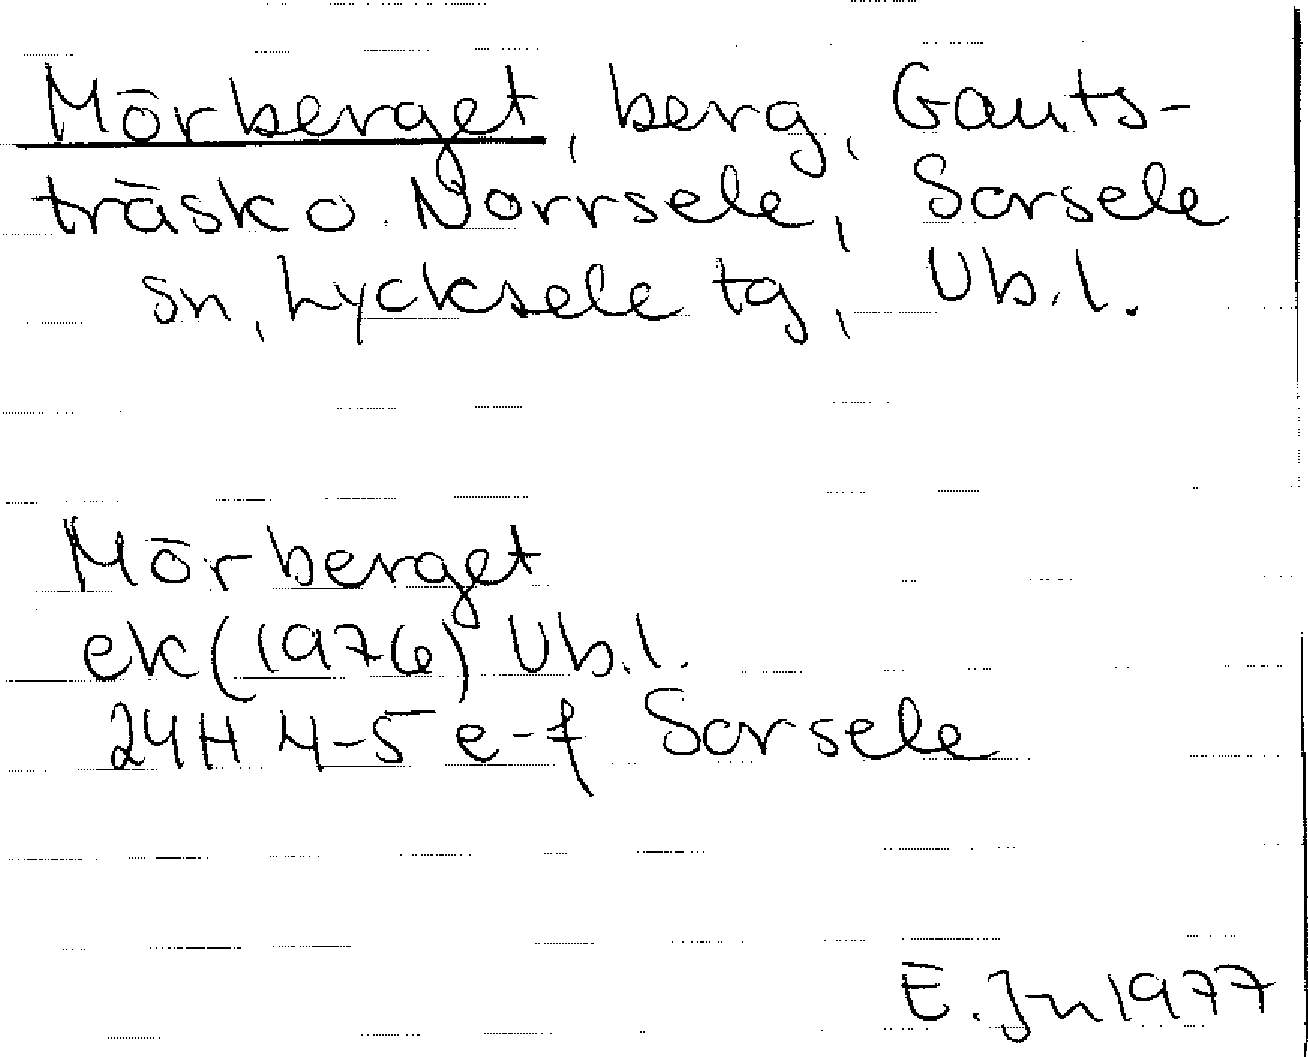 Mörberget, berg, Gauts-
träsk o. Norrsele, Sorsele
sn, Lycksele tg, Vb.l.
Mörberget
ek (1976) Vb.l.
24H 4-5 e-f Sorsele
E. Jn 1977